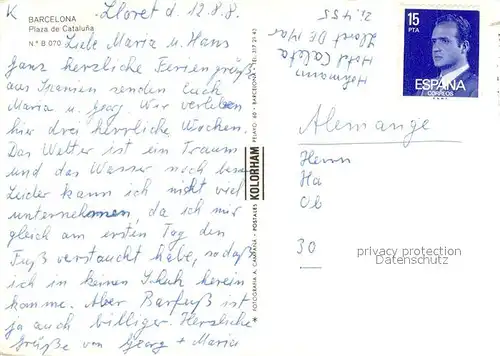 K
Lloret d. 12.8.8.
BARCELONA
Plaza de Cataluña
N.º B 070
Liebe Maria u. Hans
ganz herzliche Feriengrüße
aus Spanien senden Euch
Maria u. Georg. Wir verleben
hier drei herrliche Wochen.
Das Wetter ist ein Traum
und das Wasser noch besser
Leider kann ich nicht viel
unternehmen, da ich mir
gleich am ersten Tag den
Fuß verstaucht habe, sodaß
ich in keinen Schuh herein
komme. Aber Barfuß ist
ja auch billiger. Herzliche
Grüße von Georg + Maria
FOTOGRAFIA A. CAMPAÑA - POSTALES KOLORHAM PELAYO 60 - BARCELONA - TEL. 317 21 43
Hohmann
Hotel Caleta
Lloret De Mar
Zi. 455
15
PTA
ESPAÑA
CORREOS
Alemange
Herrn
Ha
Ob
30
privacy protection
Datenschutz